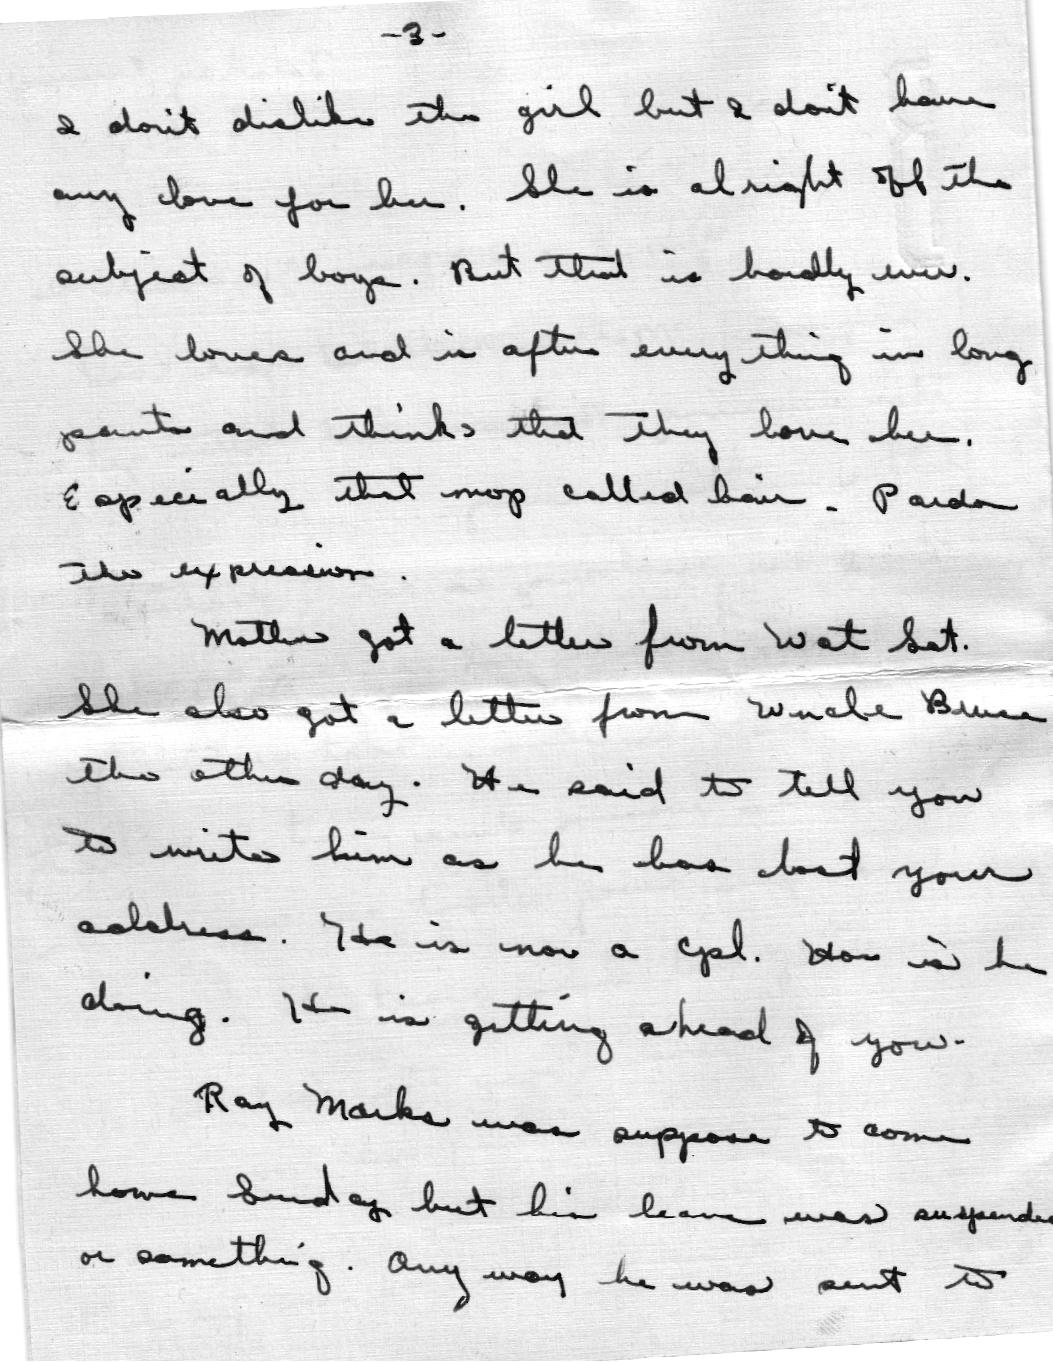 -3-
I don't dislike the girl but I don't have
any love for her. She is alright off the
subject of boys. But that is hardly ever.
She loves and is after every thing in long
pants and thinks that they love her.
Especially that mop called hair. Pardon
the expression.
Mother got a letter from Wat Sat.
She also got a letter from Uncle Bruce
the other day. He said to tell you
to write him as he has lost your
address. He is now a Cpl. How is he
doing. He is getting ahead of you.
Ray Marks was suppose to come
home Sunday but his leave was suspended
or something. Any way he was sent to